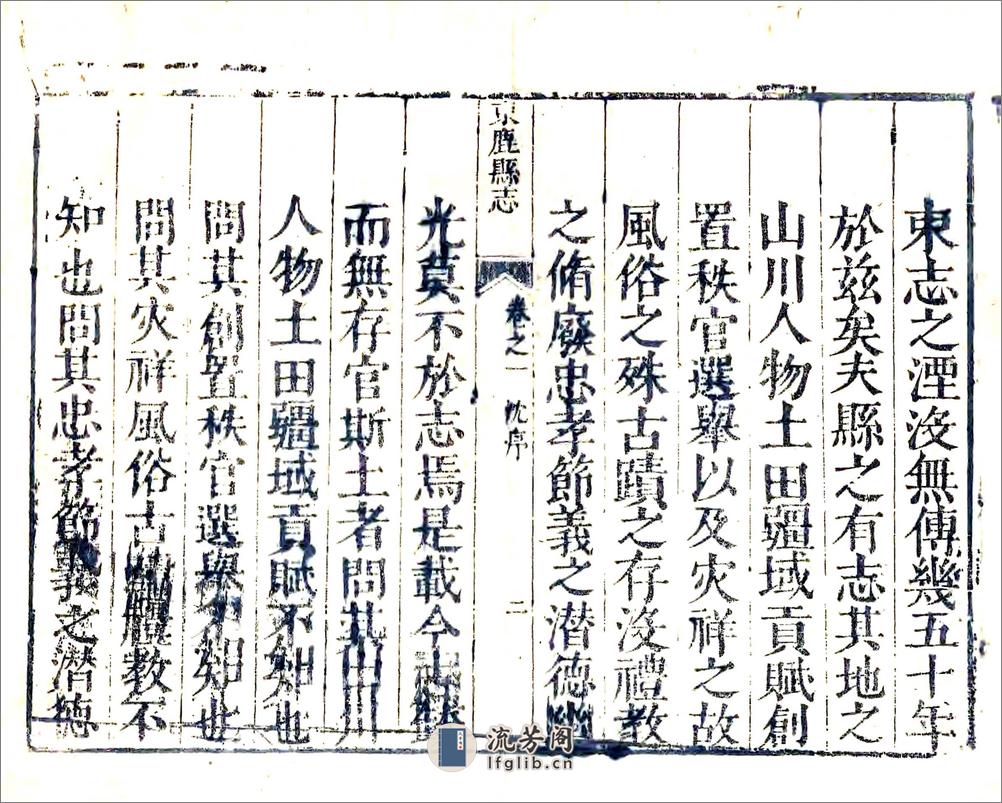 東志之湮沒無傳幾五十年
於兹矣夫縣之有志其地之
山川人物土田疆域貢賦創
置秩官選舉以及灾祥之故
風俗之殊古蹟之存沒禮教
之脩廢忠孝節義之潜德幽
東鹿縣志
卷之一
沈序
二
光莫不於志焉是載今
而無存官斯土者問其山川
人物土田疆域貢賦不知也
問其創置秩官選舉不知也
問其灾祥風俗古蹟禮教不
知也問其忠孝節義之潜德
流芳阁
lfglib.cn